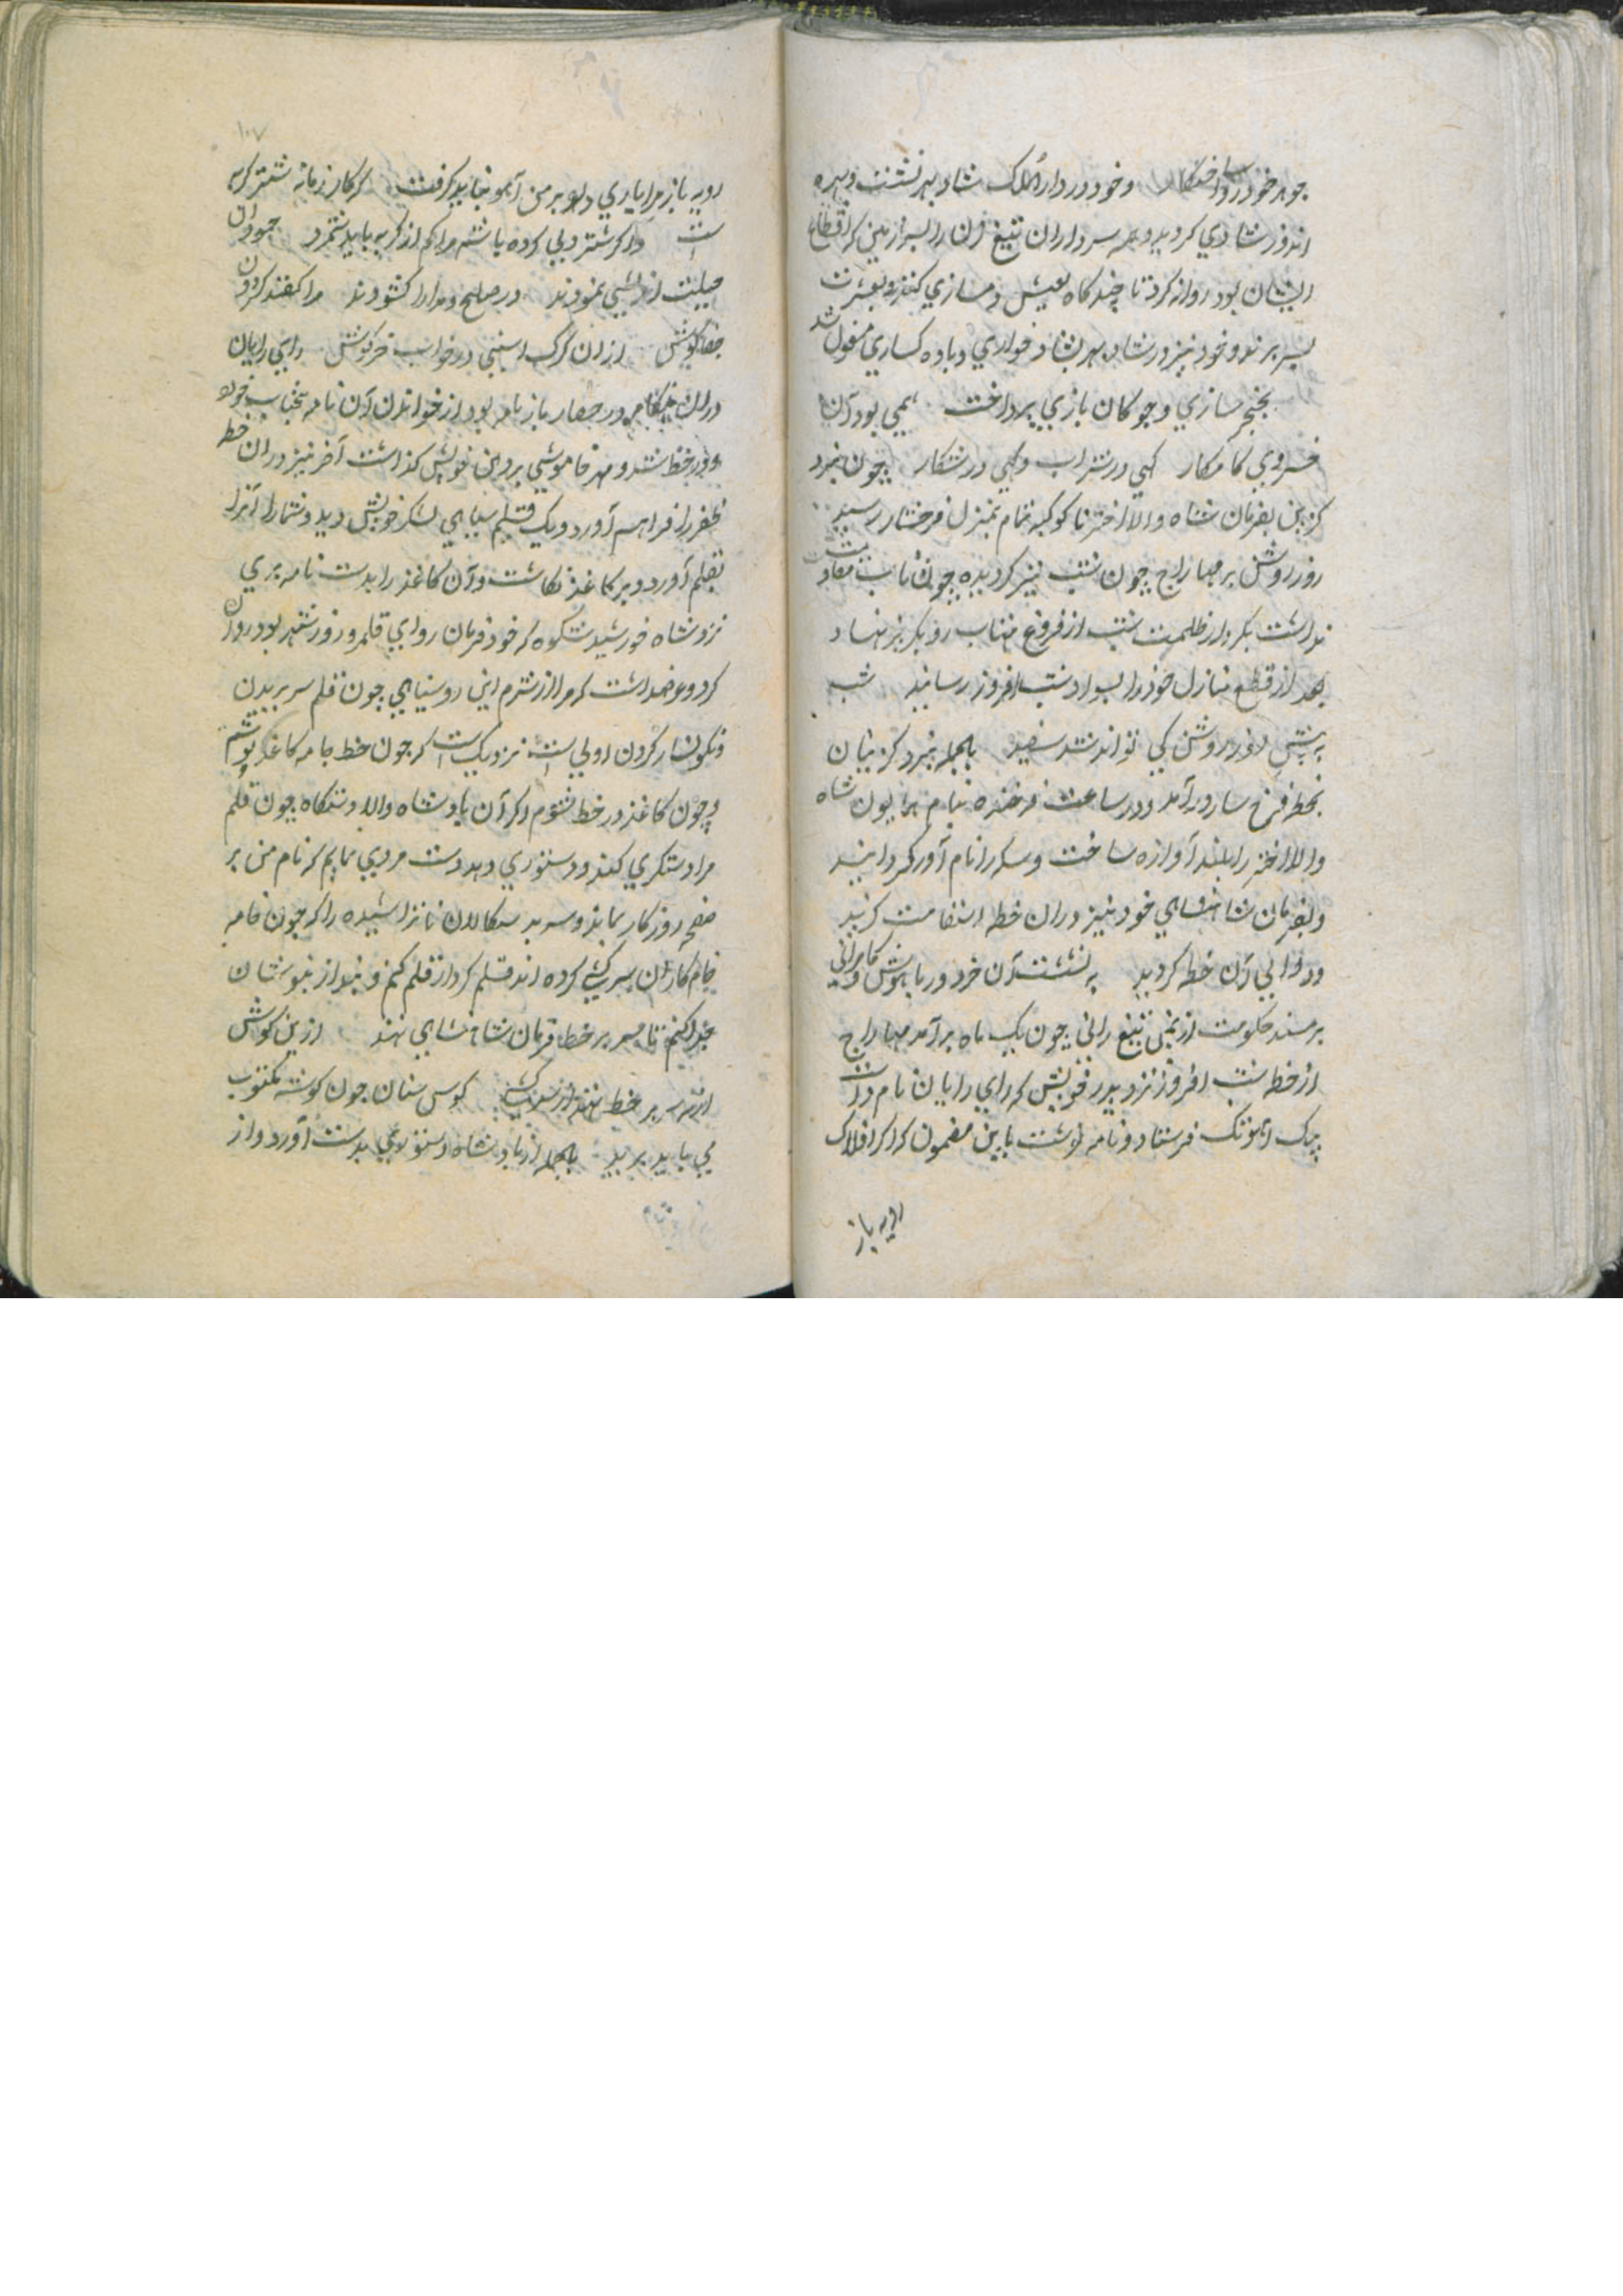 جوهر خود را وا و خود در دار الملک شاد بهر نشست و بهره
اندوز شادی گردید و همه سرداران تیغ زن را بسرزمین که اقطاع
ایشان بود روانه کرد تا چند گاه بعیش دمسازی کنند و بعشرت
بسر برند و خود نیز در شاد بهر بشاد خواری و باده کساری مشغول شد
سازی و چوکان بازی پرداخت همی بود آن
خسروی کامکار کهی در شراب و کهی در شکار چون نبرد
کزین بفرمان شاه والا اختر با کوکبه تمام بمنزل فرخشار رسید
روز روشن بر مهاراج چون شب تیره گردید چون تاب مقاومت
نداشت بکردار ظلمت شب از فروغ مهتاب رو بگریز نهاد
بعد از قطع منازل خود را بسواد شب افروز رسانید شب
به پیش روز روشن کی تواند شد سفید بالجمله نبرد کزینان
بخطه فرخ سار درآمد و در ساعت فرخنده بنام همایون شاه
والا اختر را بلند آوازه ساخت و سکه را نام آور گردانید
و بفرمان شاهنشاهی خود نیز دران خطه استقامت کزید
و والی آن خطه گردید به نشست آن خردور با هوش و کامرانی
بر مسند حکومت از تیغ رانی چون یک ماه برآمد مهاراج
از خط شب افروز نزد پدر خویش که رای رایان نام داشت
پیک فرستاد و نامه نوشت باین مضمون که اگر افلاک
روبه باز
۱۰۷
روبه باز مرا یاری دهد بر من آهو نباید گرفت که کار زمانه شتر گربه
است و اگر شتر دلی کرده باشم مرا کم از گربه باید شمرد چو دران
حیلت اندیشی نمودند در صلح و مدارا کشودند مرا کفتند کردن
خواب خرکوش رای رایان
دران هنکام در حصار باز نامه بود از خواندن آن نامه بخود
و در خط شد و مهر خاموشی بر دهن خویش گذاشت آخر نیز دران خط
ظفر را فراهم آورد و یک قلم سپاهی لشکر خویش دید و شمار آنرا
بقلم آورد و بر کاغذ نگاشت و آن کاغذ را بدست نامه بری
نزد شاه خورشید شکوه که خود فرمان روای قلمرو روز شهر بود روان
کرد و عرضداشت که مرا از شرم این روسیاهی چون قلم سر بریدن
و نگونسار کردن اولی است نزدیک است که چون خط جامه کاغذ پوشم
و چون کاغذ در خط شوم اگر آن پادشاه والا دستگاه چون قلم
مرا دستگیری کند و دستوری دهد دست مردی نمایم که نام من بر
صفحه روزگار بماند و سر بد سگالان ناتراشیده را که چون خامه
خام کاران سرکشی کرده اند قلم کردار قلم کنم و بند از بند شان
جدا کنم تا سر بر خط فرمان شاهنشاهی نهند ازین کوش
ار نه سر بر خط نهند از سرکشی کوش شان چون گوشه مکتوب
می باید برید بالجمله از پادشاه دستوری بدست آورد و از